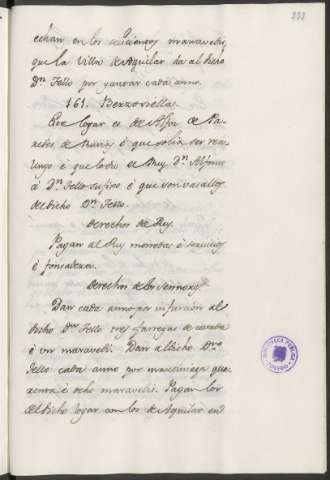 222
echan en los seiscientos maravedis,
que la Villa de Aguilar da al dicho
Dⁿ. Tello por yantar cada anno.
161. Berzosiella.
Este logar es de Alfon de Pa-
redes de Nava, é que solia ser rea-
lengo é que lo dio el Rey Dⁿ. Alfonso
á Dⁿ. Tello su fijo é que son vasallos
del dicho Dⁿ. Tello.
Derechos del Rey.
Pagan al Rey monedas é servicios
é fonsadera.
Derechos de los Sennores
Dan cada anno por infurción al
dicho Dⁿ. Tello tres farregas de cevada
é un maravedi. Dan al dicho Dⁿ.
Tello cada anno por martiniega qua-
renta é ocho maravedis. Pagan los
del dicho logar con los de Aguilar en
BIBLIOTECA PUBLICA
TOLEDO